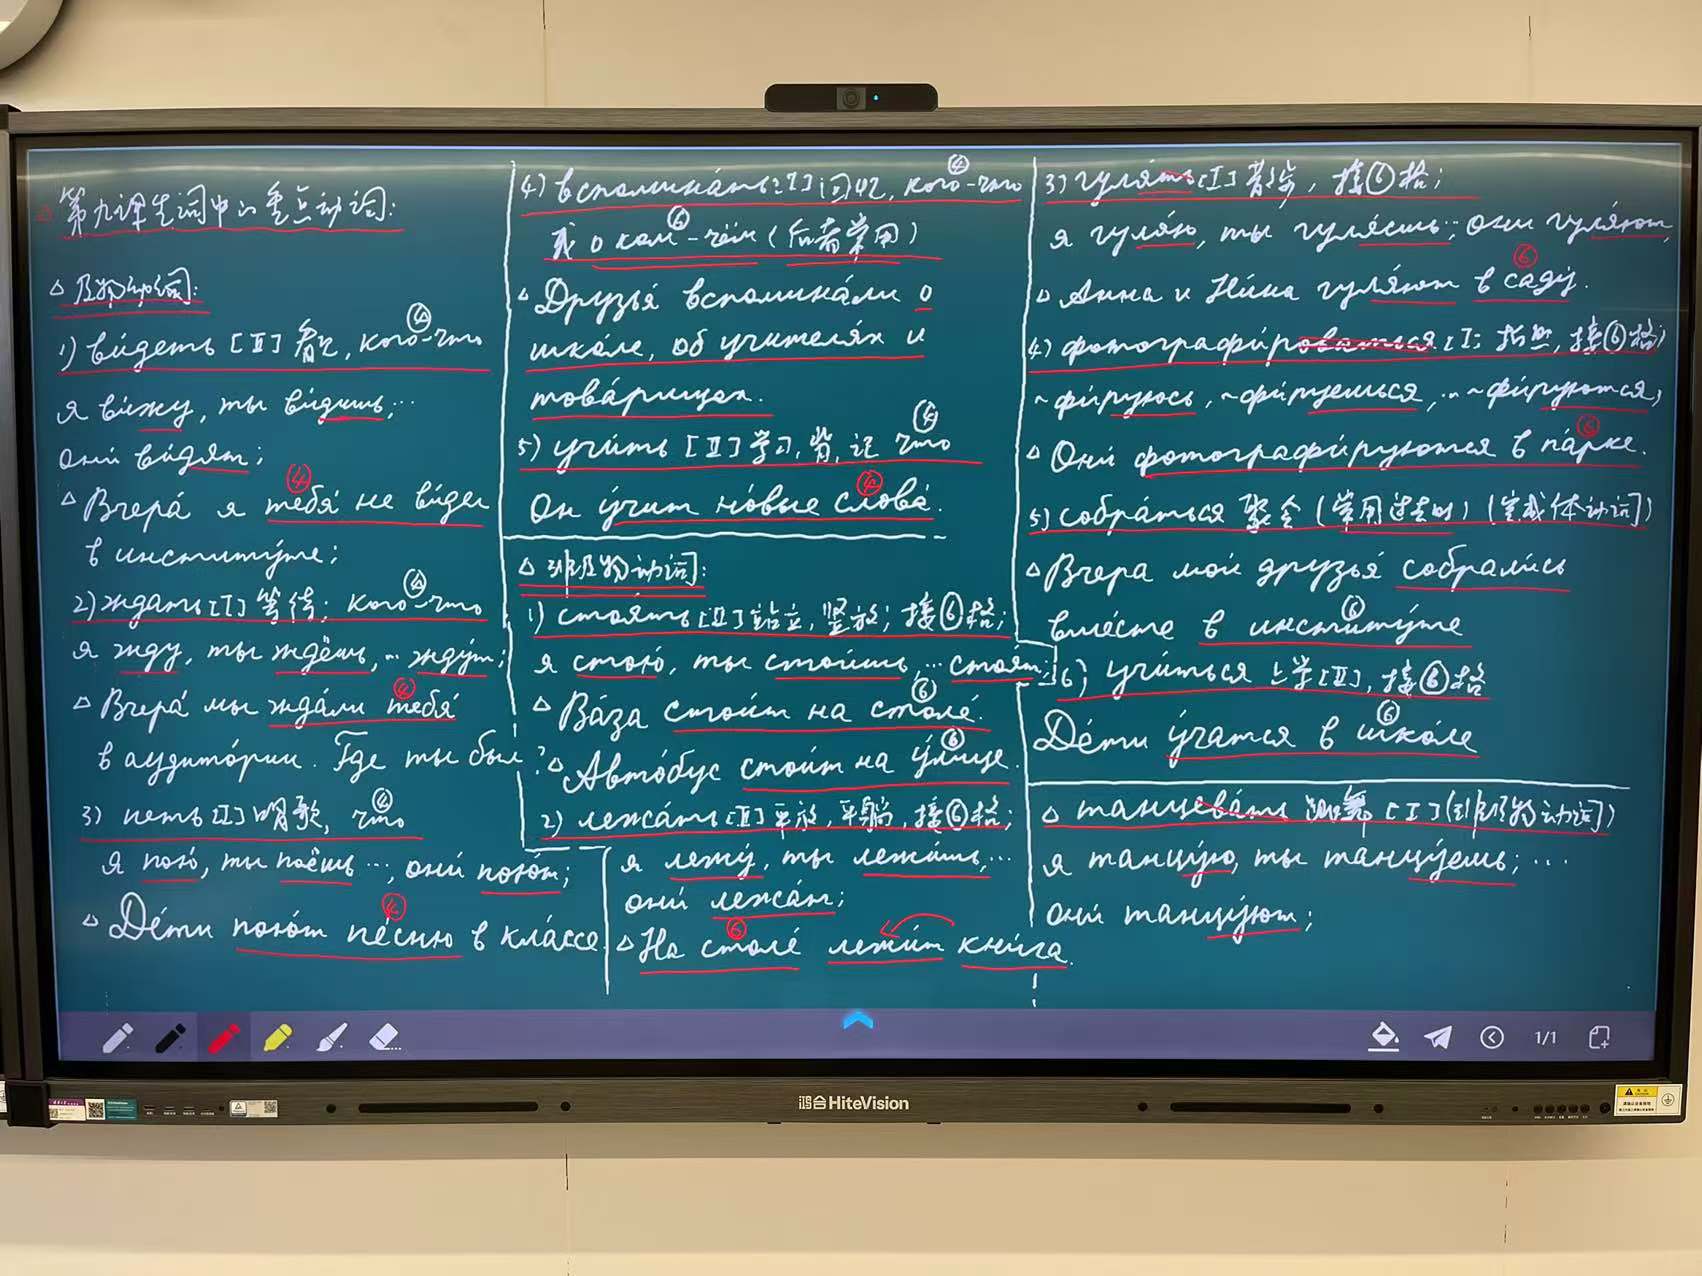 第九课生词中的重点动词:
△ 及物动词:
1) ви́деть [II] 看见, кого-что ④
я ви́жу, ты ви́дишь, …
они́ ви́дят;
△ Вчера́ я тебя́ ④ не ви́дел
в институ́те;
2) ждать [I] 等待; кого-что ④
я жду, ты ждёшь, … ждут;
△ Вчера́ мы жда́ли тебя́ ④
в аудито́рии. Где ты был?
3) петь [I] 唱歌, что ④
я пою́, ты поёшь …, они́ пою́т;
△ Де́ти пою́т пе́сню ④ в кла́ссе.
4) вспомина́ть [I] 回忆, кого-что ④
或 о ком-чём ⑥ (后者常用)
△ Друзья́ вспомина́ли о
шко́ле, об учителя́х и
това́рищах.
5) учи́ть [II] 学习, 背, 记 что ④
Он у́чит но́вые слова́ ④.
△ 非及物动词:
1) стоя́ть [II] 站立, 竖放; 接⑥格;
я стою́, ты стои́шь, … стоя́т;
△ Ва́за стои́т на столе́ ⑥.
△ Авто́бус стои́т на у́лице ⑥.
2) лежа́ть [II] 平放, 平躺, 接⑥格;
я лежу́, ты лежи́шь, …
они́ лежа́т;
△ На столе́ ⑥ лежи́т кни́га.
3) гуля́ть [I] 散步, 接⑥格;
я гуля́ю, ты гуля́ешь; они гуля́ют,
△ Анна и Ни́на гуля́ют в саду́ ⑥.
4) фотографи́роваться [I]; 拍照, 接⑥格;
~фи́руюсь, ~фи́руешься, … ~фи́руются;
△ Они́ фотографи́руются в па́рке ⑥.
5) собра́ться 聚会 (常用过去时) (完成体动词)
△ Вчера мои́ друзья́ собрали́сь
вме́сте в институ́те ⑥
6) учи́ться 上学 [II], 接⑥格
Де́ти у́чатся в шко́ле ⑥
△ танцева́ть 跳舞 [I] (非及物动词)
я танцу́ю, ты танцу́ешь; …
они́ танцу́ют;
1/1
鸿合 HiteVision